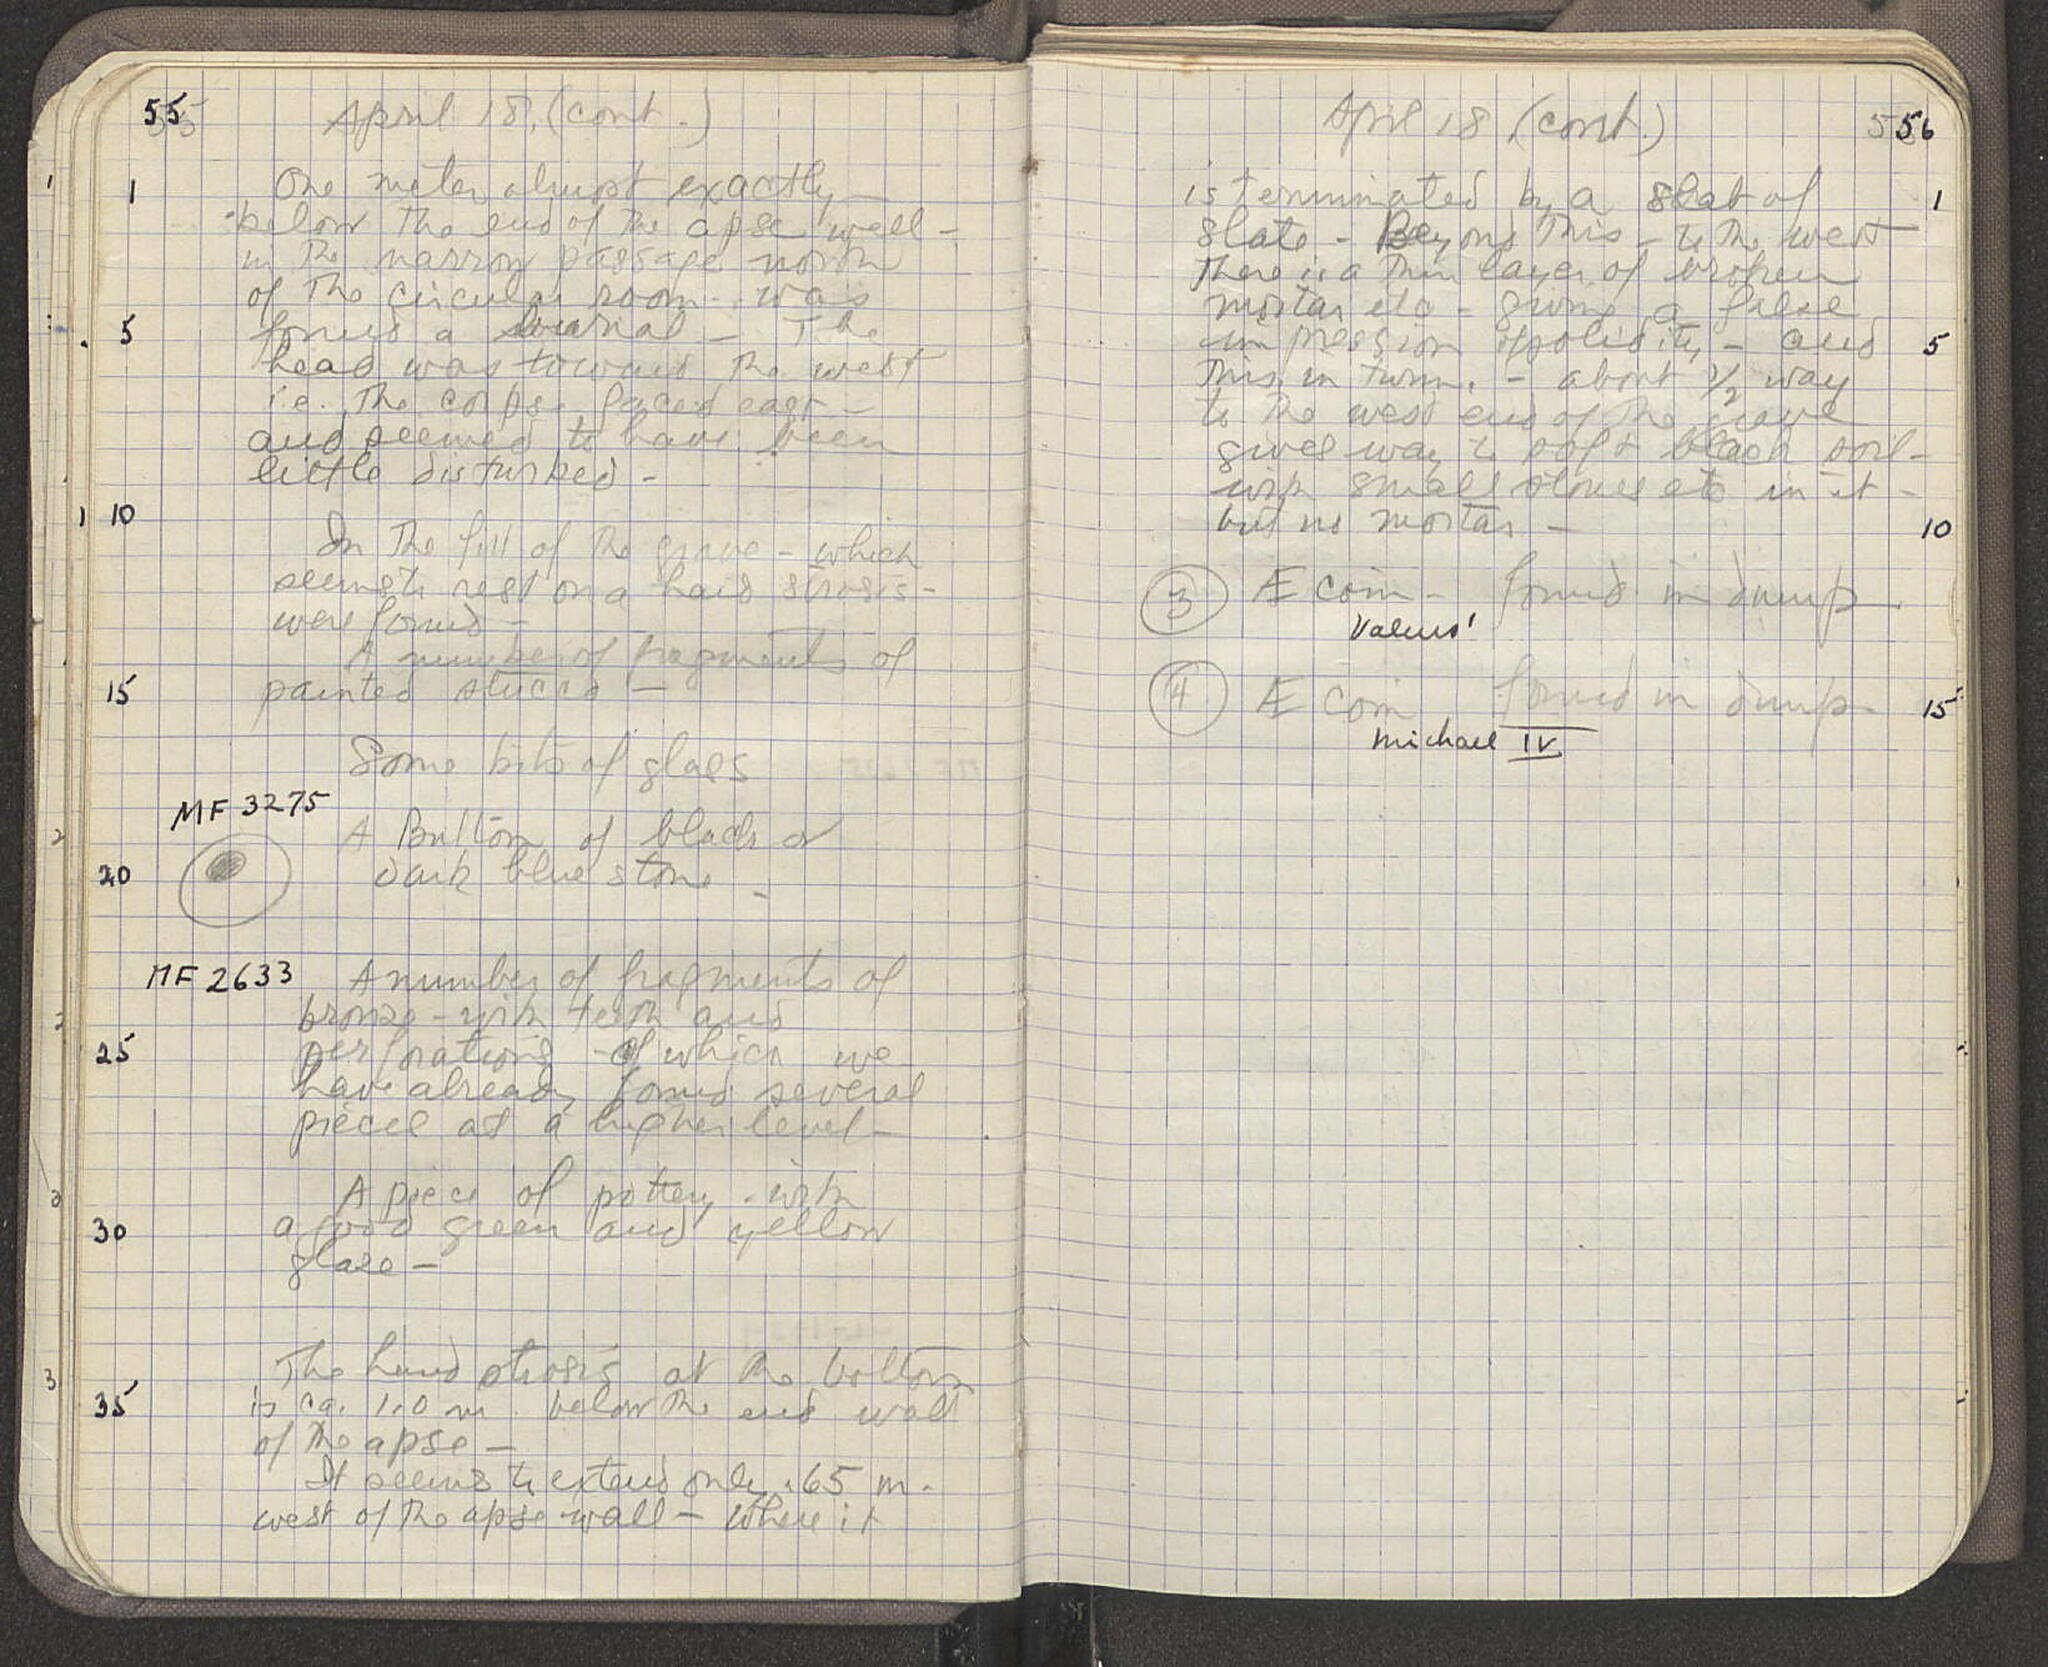 55
April 18, (cont.)
1
One meter almost exactly –
below the end of the apse wall –
in the narrow passage north
of the circular room – was
5
found a burial – The
head was towards the west
i.e. the corpse faced east –
and seemed to have been
little disturbed –
10
In the fill of the grave – which
seems to rest on a hard strosis –
were found –
A number of fragments of
15
painted stucco –
Some bits of glass
MF 3275
A Button of black or
20
dark blue stone –
MF 2633 A number of fragments of
bronze – with teeth and
25
perforations – of which we
have already found several
pieces at a higher level –
A piece of pottery – with
30
a good green and yellow
glaze –
The hard strosis at the bottom
35
is ca. 1.0 m. below the end wall
of the apse –
It seems to extend only .65 m.
west of the apse wall – where it
April 18 (cont.)
56
is terminated by a slab of
1
slate – Beyond this – to the west
there is a thin layer of broken
mortar etc – giving a false
impression of solidity – and
5
this in turn – about 1/2 way
to the west end of the grave
gives way to soft black soil –
with small stones etc in it –
but no mortar –
10
3 Æ coin – found in dump.
Valens'
4 Æ coin found in dump
15
Michael IV